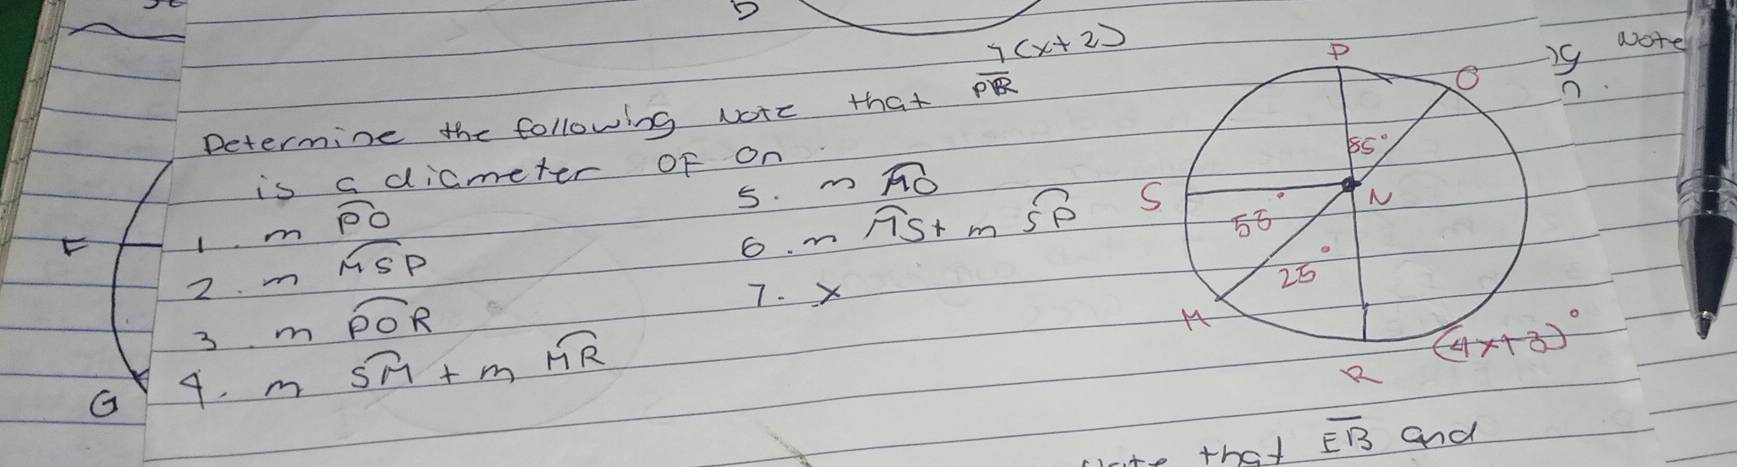 D
7(x+2)
Determine the following Note that PR
is a diameter OF On
1. m PO
2. m MSP
3. m POR
4. m SM + m MR
5. m MO
6. m MS + m SP
7. x
F
G
P
O
85°
S
N
55°
25°
M
(4x+3)°
R
Note
that EB and